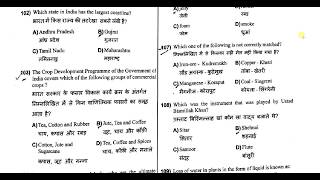 102) Which state in India has the largest coastline?
भारत में किस राज्य की तटरेखा सबसे लंबी है?
A) Andhra Pradesh
आंध्र प्रदेश
B) Gujrat
गुजरात
C) Tamil Nadu
तमिलनाडु
D) Maharashtra
महाराष्ट्र
103) The Crop Development Programme of the Government of
India covers which of the following groups of commercial
crops ?
भारत सरकार के फसल विकास कार्य क्रम के अंतर्गत
निम्नलिखित में से किन वाणिज्यिक फसलों का समूह
आता है ?
A) Tea, Cotton and Rubber
चाय, कपास और रबड़
B) Jute, Tea and Coffee
जूट, चाय और कॉफी
C) Cotton, Jute and
Sugarcane
कपास, जूट और गन्ना
D) Tea, Coffee and Spices
चाय, कॉफी और मसाले
are the ultimate
A) jelly
जेली
B)
C) foam
फोम
D) smoke
धुआं
107) Which one of the following is not correctly matched?
A) Iron-ore - Kudremukh
लौह अयस्क - कुद्रेमुख
B) Copper - Khatri
C) Manganese - Koraput
मैंगनीज - कोरापुट
D) Coal - Singreni
कोयला - सिंगरेनी
108) Which was the instrument that was played by Ustad
Bismillah Khan?
उस्ताद बिस्मिल्लाह खाँ कौन सा वाद्य बजाते थे?
A) Sitar
सितार
B) Shehnai
शहनाई
C) Santoor
संतूर
D) Flute
बांसुरी
109) Loss of water in plants in the form of liquid is known as: